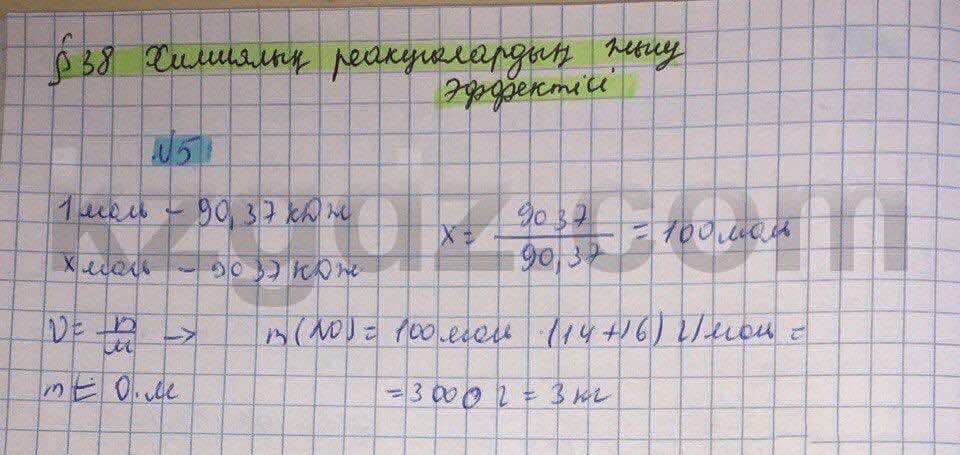 § 38 Химиялық реакциялардың жылу
эффектісі
№5
1 моль – 90,37 кДж
x моль – 9037 кДж
x = 9037 / 90,37 = 100 моль
υ = m / M → m(NO) = 100 моль · (14+16) г/моль =
m = υ · M = 3000 г = 3 кг
kzgdz.com